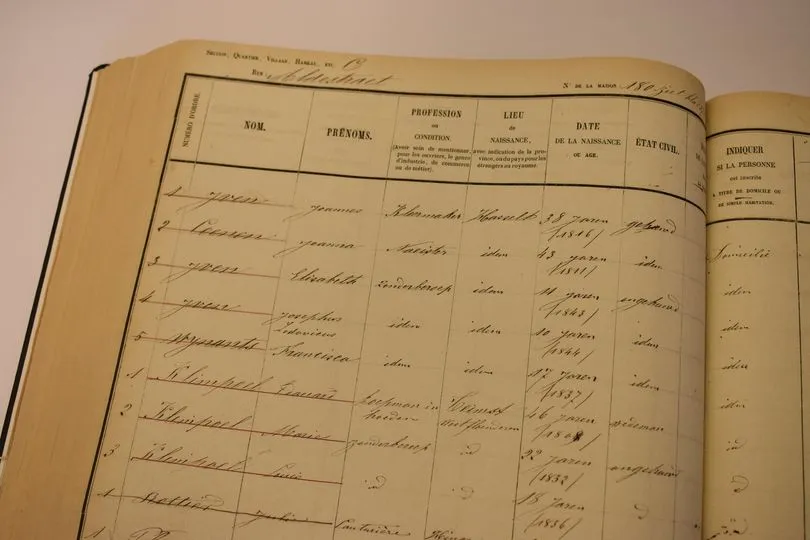 Section, Quartier, Village, Hameau, etc.
Rue Aldestraet N° de la maison 180
NUMÉRO D'ORDRE.
NOM.
PRÉNOMS.
PROFESSION
ou
CONDITION.
(Avoir soin de mentionner,
pour les ouvriers, le genre
d'industrie, de commerce
ou de métier).
LIEU
de
NAISSANCE,
avec indication de la pro-
vince, ou du pays pour les
étrangers au royaume.
DATE
DE LA NAISSANCE
OU AGE.
ÉTAT CIVIL.
INDIQUER
SI LA PERSONNE
est inscrite
A TITRE DE DOMICILE OU
DE SIMPLE HABITATION.
1 Yven Joannes Kleermaker Hasselt 38 Jaren gehuwd Domicilié
(1816)
2 Coenen Joanna Naaister idem 43 Jaren idem idem
(1811)
3 Yven Elisabeth zonderberoep idem 11 Jaren ongehuwd idem
(1843)
4 Yven Josephus idem idem 10 Jaren idem idem
Ludovicus (1844)
5 Wynants Francisca idem idem 17 Jaren idem idem
(1837)
1 Klimpoel koopman in 46 Jaren
hoeden Westflanderen
2 Klimpoel Marie zonderberoep id 22 Jaren ongehuwd id
(1832)
3 Klimpoel id id 18 Jaren id id
(1836)
1 Julie Couturière